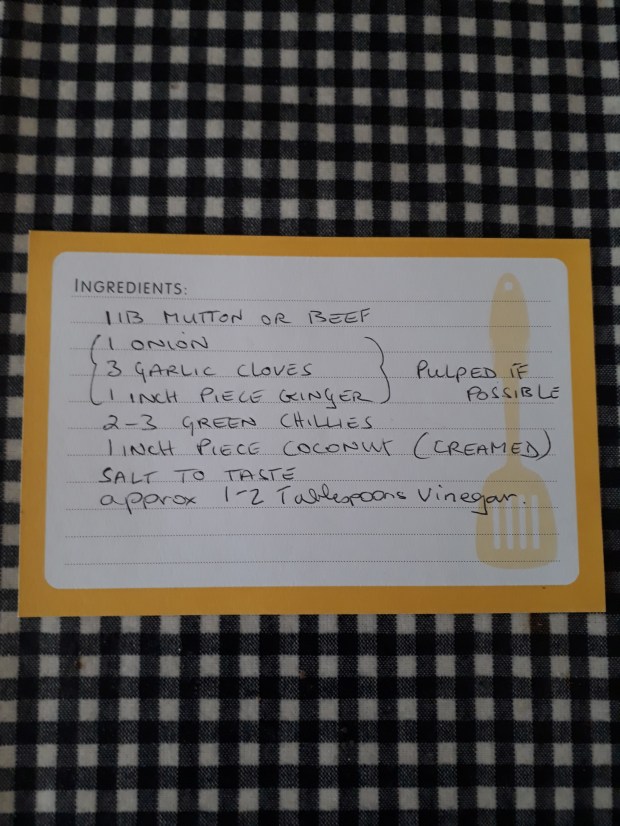 INGREDIENTS:
1 lB MUTTON OR BEEF
(1 ONION
3 GARLIC CLOVES
1 INCH PIECE GINGER) PULPED IF POSSIBLE
2-3 GREEN CHILLIES
1 INCH PIECE COCONUT (CREAMED)
SALT TO TASTE
approx 1-2 Tablespoons Vinegar.